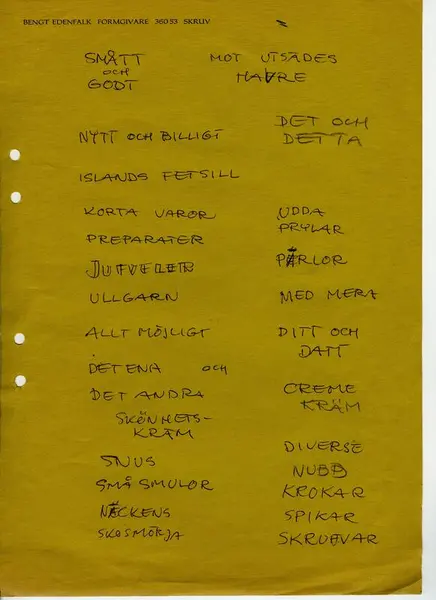 BENGT EDENFALK FORMGIVARE 360 53 SKRUV
SMÅTT
OCH
GODT
MOT UTSÄDES
HAVRE
NYTT OCH BILLIGT
DET OCH
DETTA
ISLANDS FETSILL
KORTA VAROR
UDDA
PRYLAR
PREPARATER
JUVELER
PÄRLOR
ULLGARN
MED MERA
ALLT MÖJLIGT
DITT OCH
DATT
DET ENA OCH
DET ANDRA
CREME
KRÄM
SKÖNHETS-
KRÄM
DIVERSE
SNUS
NUBB
SMÅ SMULOR
KROKAR
NÄCKENS
SPIKAR
SKOSMÖRJA
SKRUVAR